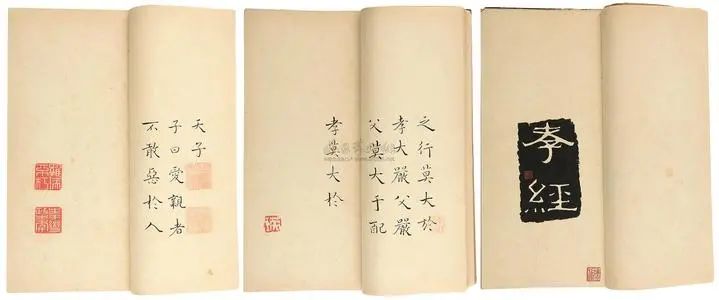 孝經
之行莫大於
孝大嚴父嚴
父莫大于配
孝莫大於
天子
子曰愛親者
不敢惡於人